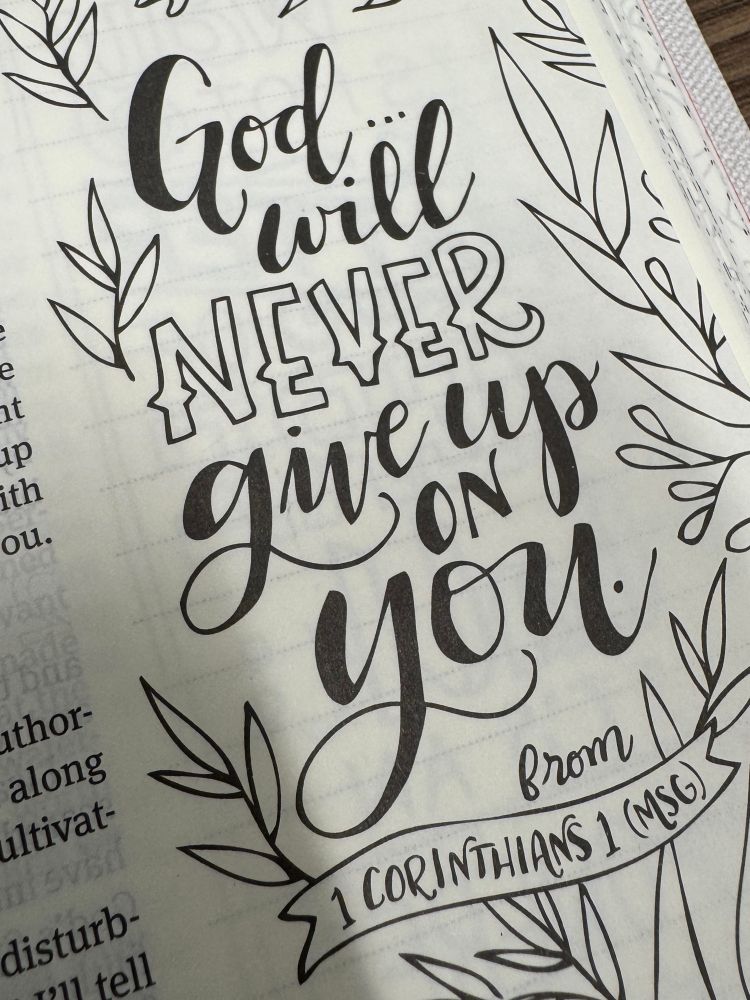 God...
will
NEVER
give up
ON
you.
from
1 CORINTHIANS 1 (MSG)
up
ith
ou.
uthor-
along
ultivat-
disturb-
I'll tell